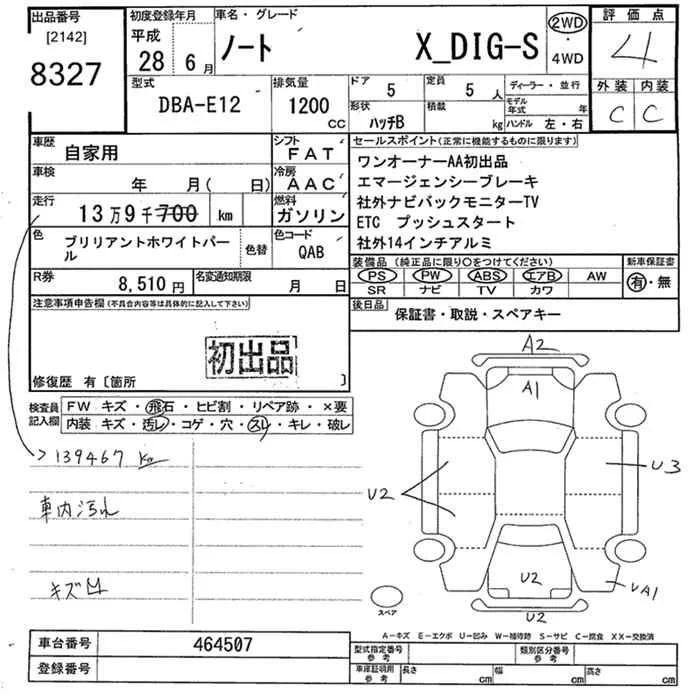 出品番号
[2142]
8327
初度登録年月
平成
28年6月
車名・グレード
ノート X_DIG-S
2WD
・
4WD
評価点
4
外装 内装
C C
型式
DBA-E12
排気量
1200
CC
ドア 5
定員 5人
形状 ハッチB
積載 kg
ディーラー・並行
モデル年式 年
ハンドル 左・右
車歴
自家用
シフト
FAT
車検
年 月( 日)
冷房
AAC
走行
13万9千700 km
燃料
ガソリン
色
ブリリアントホワイトパール
色替
色コード
QAB
R券
8,510円
名変通知期限
月 日
セールスポイント(正常に機能するものに限ります)
ワンオーナーAA初出品
エマージェンシーブレーキ
社外ナビバックモニターTV
ETC プッシュスタート
社外14インチアルミ
装備品(純正品に限り○をつけてください)
PS PW ABS エアB AW
SR ナビ TV カワ
新車保証書
有・無
後日品
保証書・取説・スペアキー
注意事項申告欄(不具合内容等は具体的に記入して下さい)
初出品
修復歴 有〔箇所 〕
検査員記入欄
FW キズ・飛石・ヒビ割・リペア跡・×要
内装 キズ・汚レ・コゲ・穴・スレ・キレ・破レ
>139467 km
車内汚れ
キズ凹
A2
A1
U2
U3
U2
UA1
U2
スペア
車台番号
464507
登録番号
A-キズ E-エクボ U-凹み W-補修跡 S-サビ C-腐食 XX-交換済
型式指定番号
参考
類別区分番号
参考
車庫証明用
参考
長さ cm
幅 cm
高さ cm